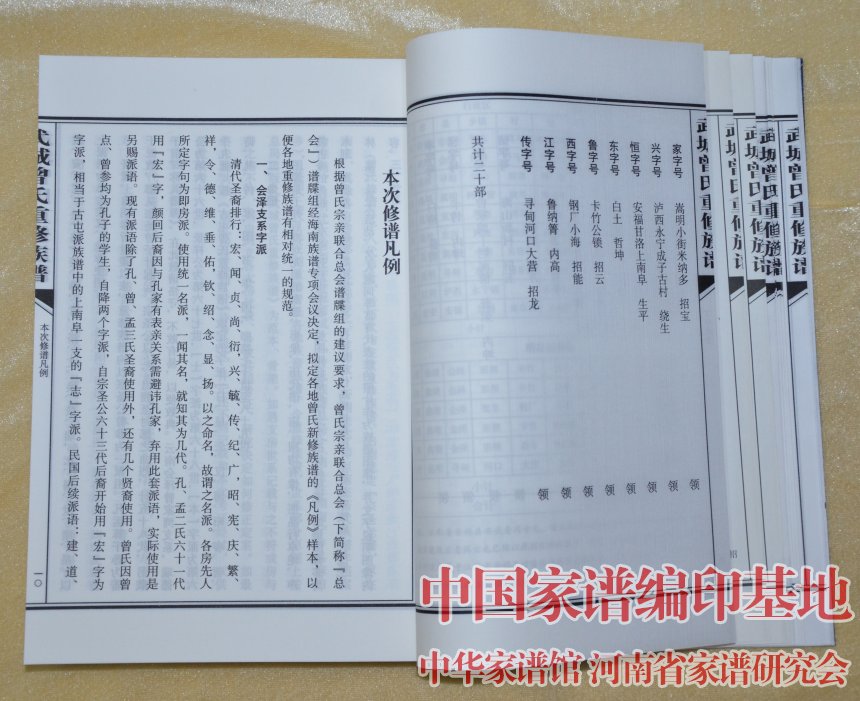 武城曾氏重修族谱
武城曾氏重修族谱
武城曾氏重修族谱
武城曾氏重修族谱
武城曾氏重修族谱
家字号 嵩明小街米纳多 招宝 领
兴字号 泸西永宁成子古村 绕生 领
恒字号 安福甘洛上南阜 生平 领
东字号 白土 哲坤 领
鲁字号 卡竹公锁 招云 领
西字号 钢厂小海 招能 领
江字号 鲁纳箐 内高 领
传字号 寻甸河口大营 招龙 领
共计二十部
本次修谱凡例
根据曾氏宗亲联合总会谱牒组的建议要求，曾氏宗亲联合总会（下简称『总
会』）谱牒组经海南族谱专项会议决定，拟定各地曾氏新修族谱的《凡例》样本，以
便各地重修族谱有相对统一的规范。
一、会泽支系字派
清代圣裔排行：宏、闻、贞、尚、衍，兴、毓、传、纪、广，昭、宪、庆、繁、
祥，令、德、维、垂、佑，钦、绍、念、显、扬。以之命名，故谓之名派。各房先人
所定字句为即房派。使用统一名派，一闻其名，就知其为几代。孔、孟二氏六十一代
用『宏』字，颜回后裔因与孔家有表亲关系需避讳孔家，弃用此套派语，实际使用是
另赐派语。现有派语除了孔、曾、孟三氏圣裔使用外，还有几个贤裔使用。曾氏因曾
点、曾参均为孔子的学生，自降两个字派，自宗圣公六十三代后裔开始用『宏』字为
字派，相当于古屯派族谱中的上南阜一支的『志』字派。民国后续派语：建、道、
武城曾氏重修族谱
本次修谱凡例
一〇
中国家谱编印基地
中华家谱馆 河南省家谱研究会